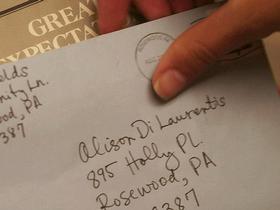 GREA
EXPECTA
olds
nity Ln.
ood, PA
387
Alison DiLaurentis
895 Holly PL.
Rosewood, PA
387